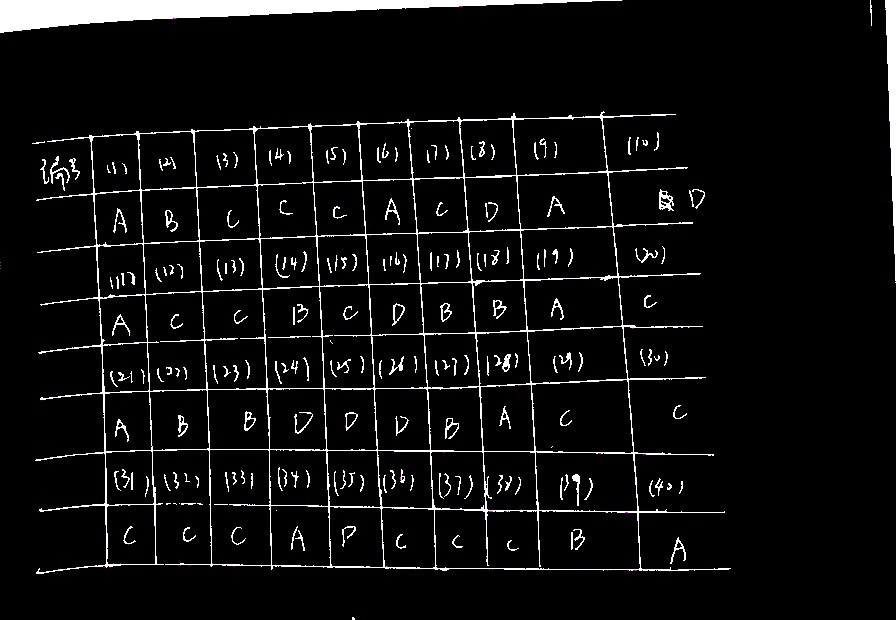 编号 (1) (2) (3) (4) (5) (6) (7) (8) (9) (10)
A B C C C A C D A D
(11) (12) (13) (14) (15) (16) (17) (18) (19) (20)
A C C B C D B B A C
(21) (22) (23) (24) (25) (26) (27) (28) (29) (30)
A B B D D D B A C C
(31) (32) (33) (34) (35) (36) (37) (38) (39) (40)
C C C A P C C C B A